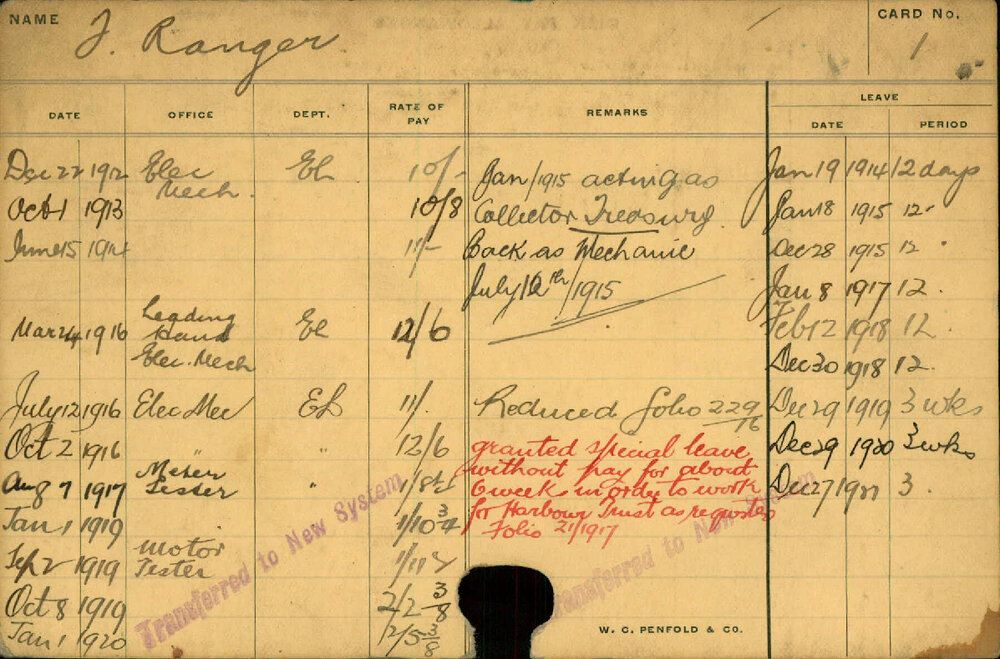 NAME J. Ranger. CARD No. 1
LEAVE
DATE OFFICE DEPT. RATE OF PAY REMARKS DATE PERIOD
Dec 22 1912 Elec Mech. El 10/- Jan/1915 acting as Jan 19 1914 12 days
Oct 1 1913 10/8 Collector Treasury. Jan 18 1915 12 "
June 15 1914 11/- Back as Mechanic Dec 28 1915 12 "
July 12th/1915 Jan 8 1917 12.
Mar 24 1916 Leading Hand El 12/6 Feb 12 1918 12.
Elec. Mech Dec 30 1918 12.
July 12 1916 Elec Mec El 11/. Reduced folio 229/16 Dec 29 1919 3 wks
Oct 2 1916 " " 12/6 granted special leave Dec 29 1920 3 wks
without pay for about
Aug 7 1917 Meter Tester " 1/8½ 6 week in order to work Dec 27 1921 3.
Jan 1 1919 1/10¾ for Harbour Trust as requested
Folio 21/1917
Sep 2 1919 Motor Tester
Oct 8 1919 2/2⅜
Jan 1 1920 2/5⅜
Transferred to New System
Transferred to New System
W. C. PENFOLD & CO.